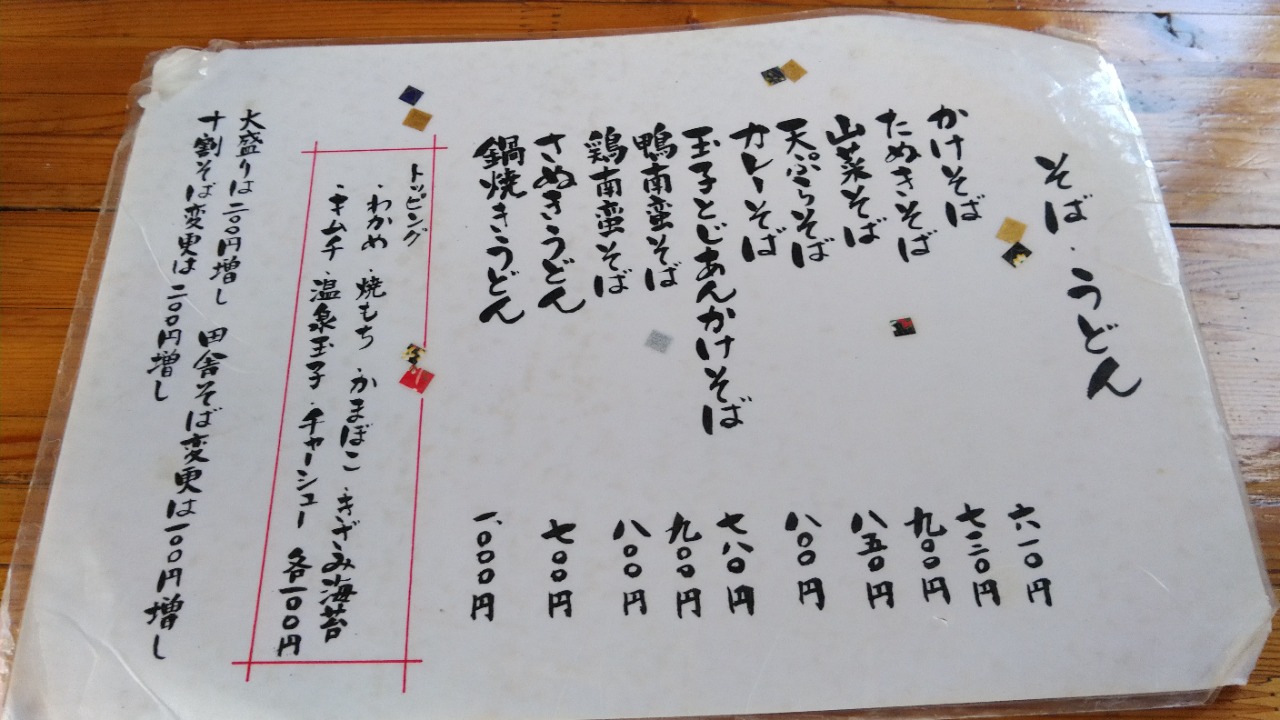 そば・うどん
かけそば 六一〇円
たぬきそば 七二〇円
山菜そば 九〇〇円
天ぷらそば 八五〇円
カレーそば 八〇〇円
玉子とじあんかけそば 七八〇円
鴨南蛮そば 九〇〇円
鶏南蛮そば 八〇〇円
さぬきうどん 七〇〇円
鍋焼きうどん 一、〇〇〇円
トッピング
・わかめ ・焼もち ・かまぼこ ・きざみ海苔
・キムチ ・温泉玉子 ・チャーシュー 各一〇〇円
大盛りは二〇〇円増し 田舎そば変更は一〇〇円増し
十割そば変更は二〇〇円増し